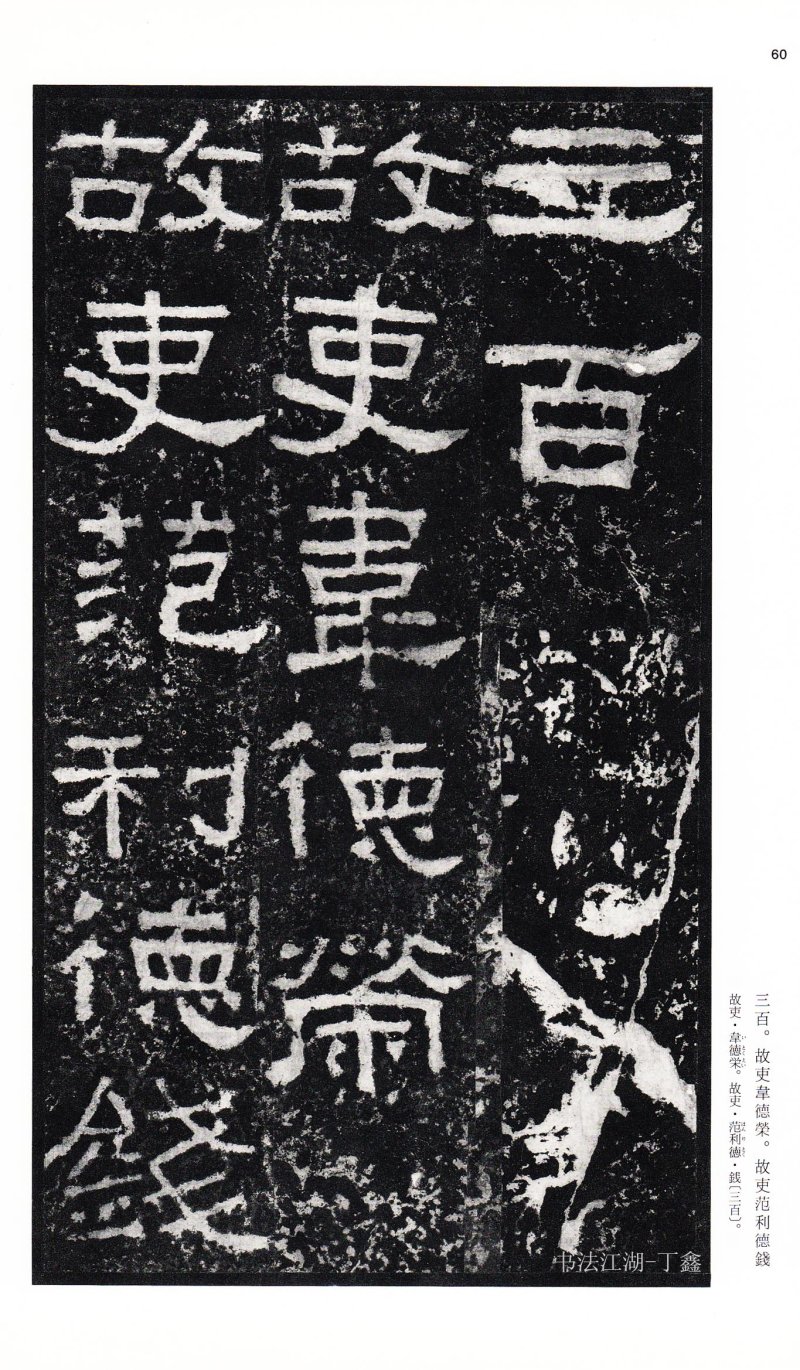 60
三百
故吏韋德榮
故吏范利德錢
三百。故吏韋德榮。故吏范利德錢
故吏・韋德栄。故吏・范利德・銭〔三百〕。
书法江湖-丁鑫